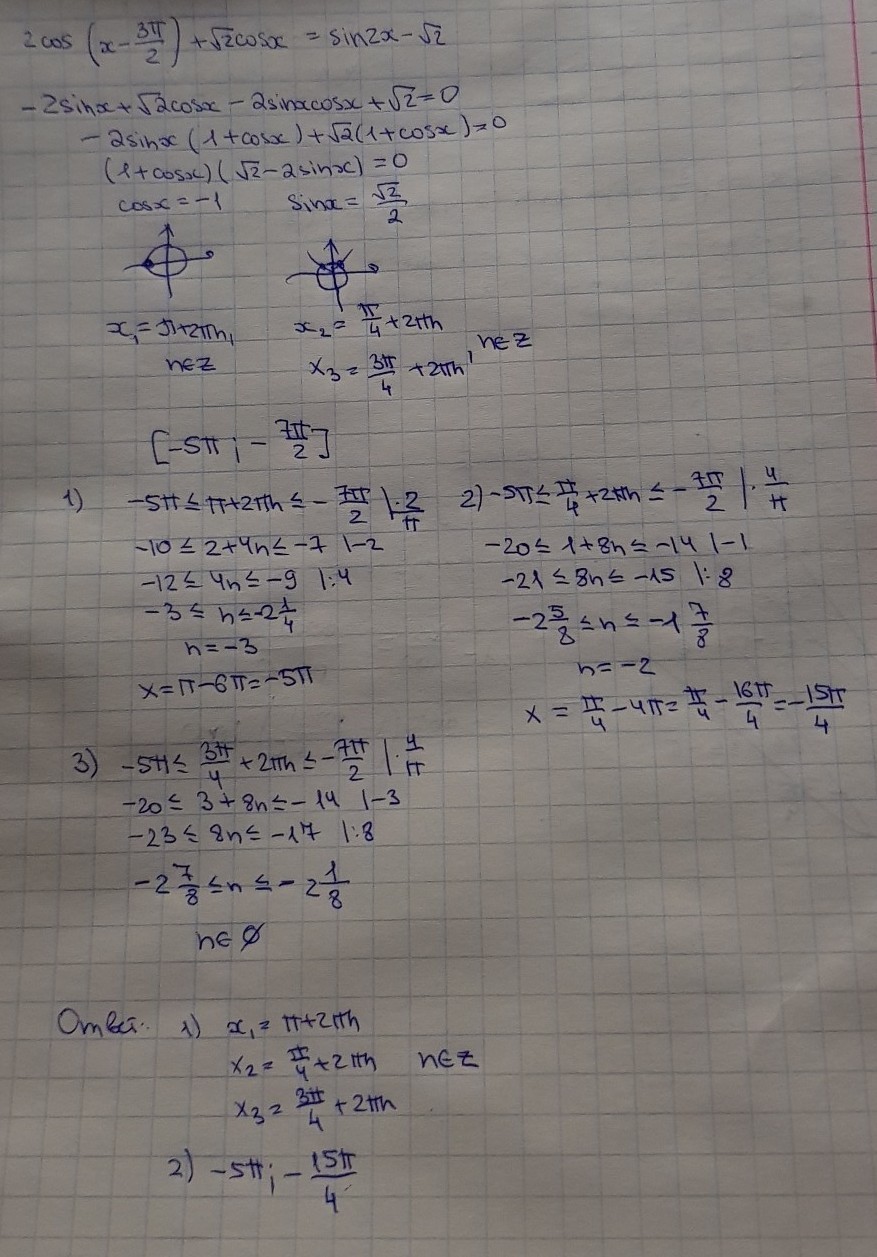 2cos (x - 3π/2) + √2cosx = sin2x - √2
-2sinx + √2cosx - 2sinxcosx + √2 = 0
-2sinx (1 + cosx) + √2(1 + cosx) = 0
(1 + cosx)(√2 - 2sinx) = 0
cosx = -1 sinx = √2/2
x₁ = π + 2πn, x₂ = π/4 + 2πn
n∈Z x₃ = 3π/4 + 2πn, n∈Z
[-5π; -7π/2]
1) -5π ≤ π + 2πn ≤ -7π/2 |·2/π
-10 ≤ 2 + 4n ≤ -7 |-2
-12 ≤ 4n ≤ -9 |:4
-3 ≤ n ≤ -2 1/4
n = -3
x = π - 6π = -5π
2) -5π ≤ π/4 + 2πn ≤ -7π/2 |·4/π
-20 ≤ 1 + 8n ≤ -14 |-1
-21 ≤ 8n ≤ -15 |:8
-2 5/8 ≤ n ≤ -1 7/8
n = -2
x = π/4 - 4π = π/4 - 16π/4 = -15π/4
3) -5π ≤ 3π/4 + 2πn ≤ -7π/2 |·4/π
-20 ≤ 3 + 8n ≤ -14 |-3
-23 ≤ 8n ≤ -17 |:8
-2 7/8 ≤ n ≤ -2 1/8
n∈ ∅
Ответ: 1) x₁ = π + 2πn
x₂ = π/4 + 2πn n∈Z
x₃ = 3π/4 + 2πn
2) -5π; -15π/4